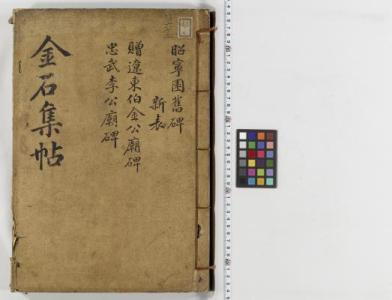 昭寧園舊碑
新表
贈遼東伯金公廟碑
忠武李公廟碑
金石集帖